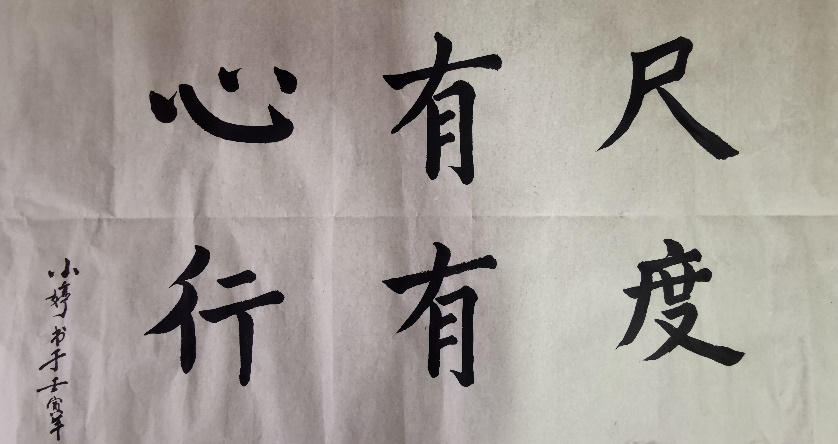 心有尺
行有度
小婷书于壬寅年